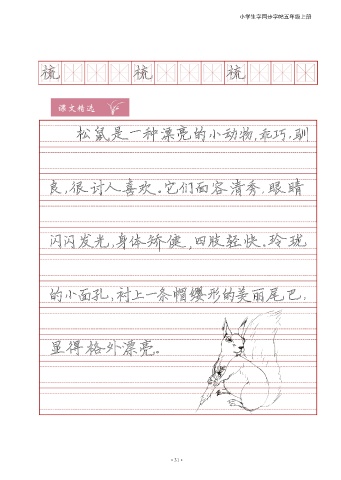 小学生字同步字帖五年级上册
梳 梳 梳
课文精选
松鼠是一种漂亮的小动物,乖巧,驯
良,很讨人喜欢。它们面容清秀,眼睛
闪闪发光,身体矫健,四肢轻快。玲珑
的小面孔,衬上一条帽缨形的美丽尾巴,
显得格外漂亮。
·31·